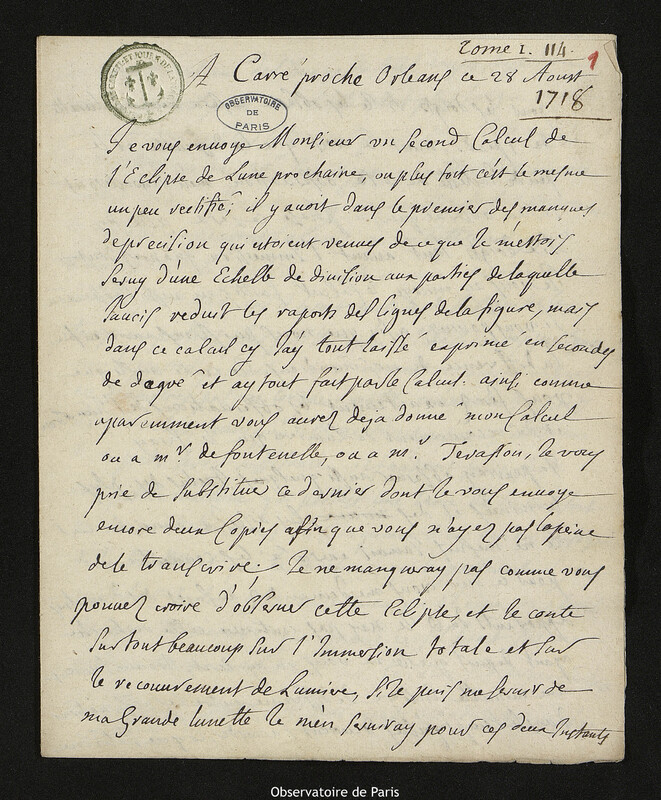 Tome 1. 114. 1
A Carré proche Orleans ce 28 Aoust
1718
OBSERVATOIRE
DE
PARIS
Je vous envoye Monsieur un second Calcul de
l'Eclipse de Lune prochaine, ou plus tost c'est le mesme
un peu rectifié; il y avoit dans le premier des manques
de precision qui etoient venues de ce que je m'estois
servy d'une Echelle de division aux parties de laquelle
j'avois reduit les raports des lignes de la figure, mais
dans ce calcul cy j'ay tout laissé exprimé en secondes
de degré et ay tout fait par le Calcul. ainsi comme
aparemment vous aurez deja donné mon Calcul
ou a mr. de fontenelle, ou a mr. je vous
prie de substituer ce dernier dont je vous envoye
encore deux Copies afin que vous n'ayez pas la peine
de le transcrire; Je ne manqueray pas comme vous
pouvez croire d'observer cette Eclipse, et je conte
surtout beaucoup sur l'Immersion totale et sur
le recouvrement de Lumiere, si je puis me servir de
ma Grande lunette je m'en serviray pour ces deux Instants
Observatoire de Paris